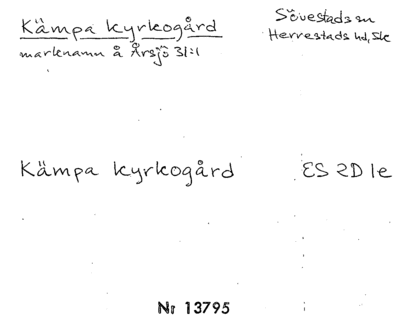 Kämpa kyrkogård
Sövestads sn
marknamn å Årsjö 31:1
Herrestads hd, Sk
Kämpa kyrkogård
ES 2D 1e
Nr 13795